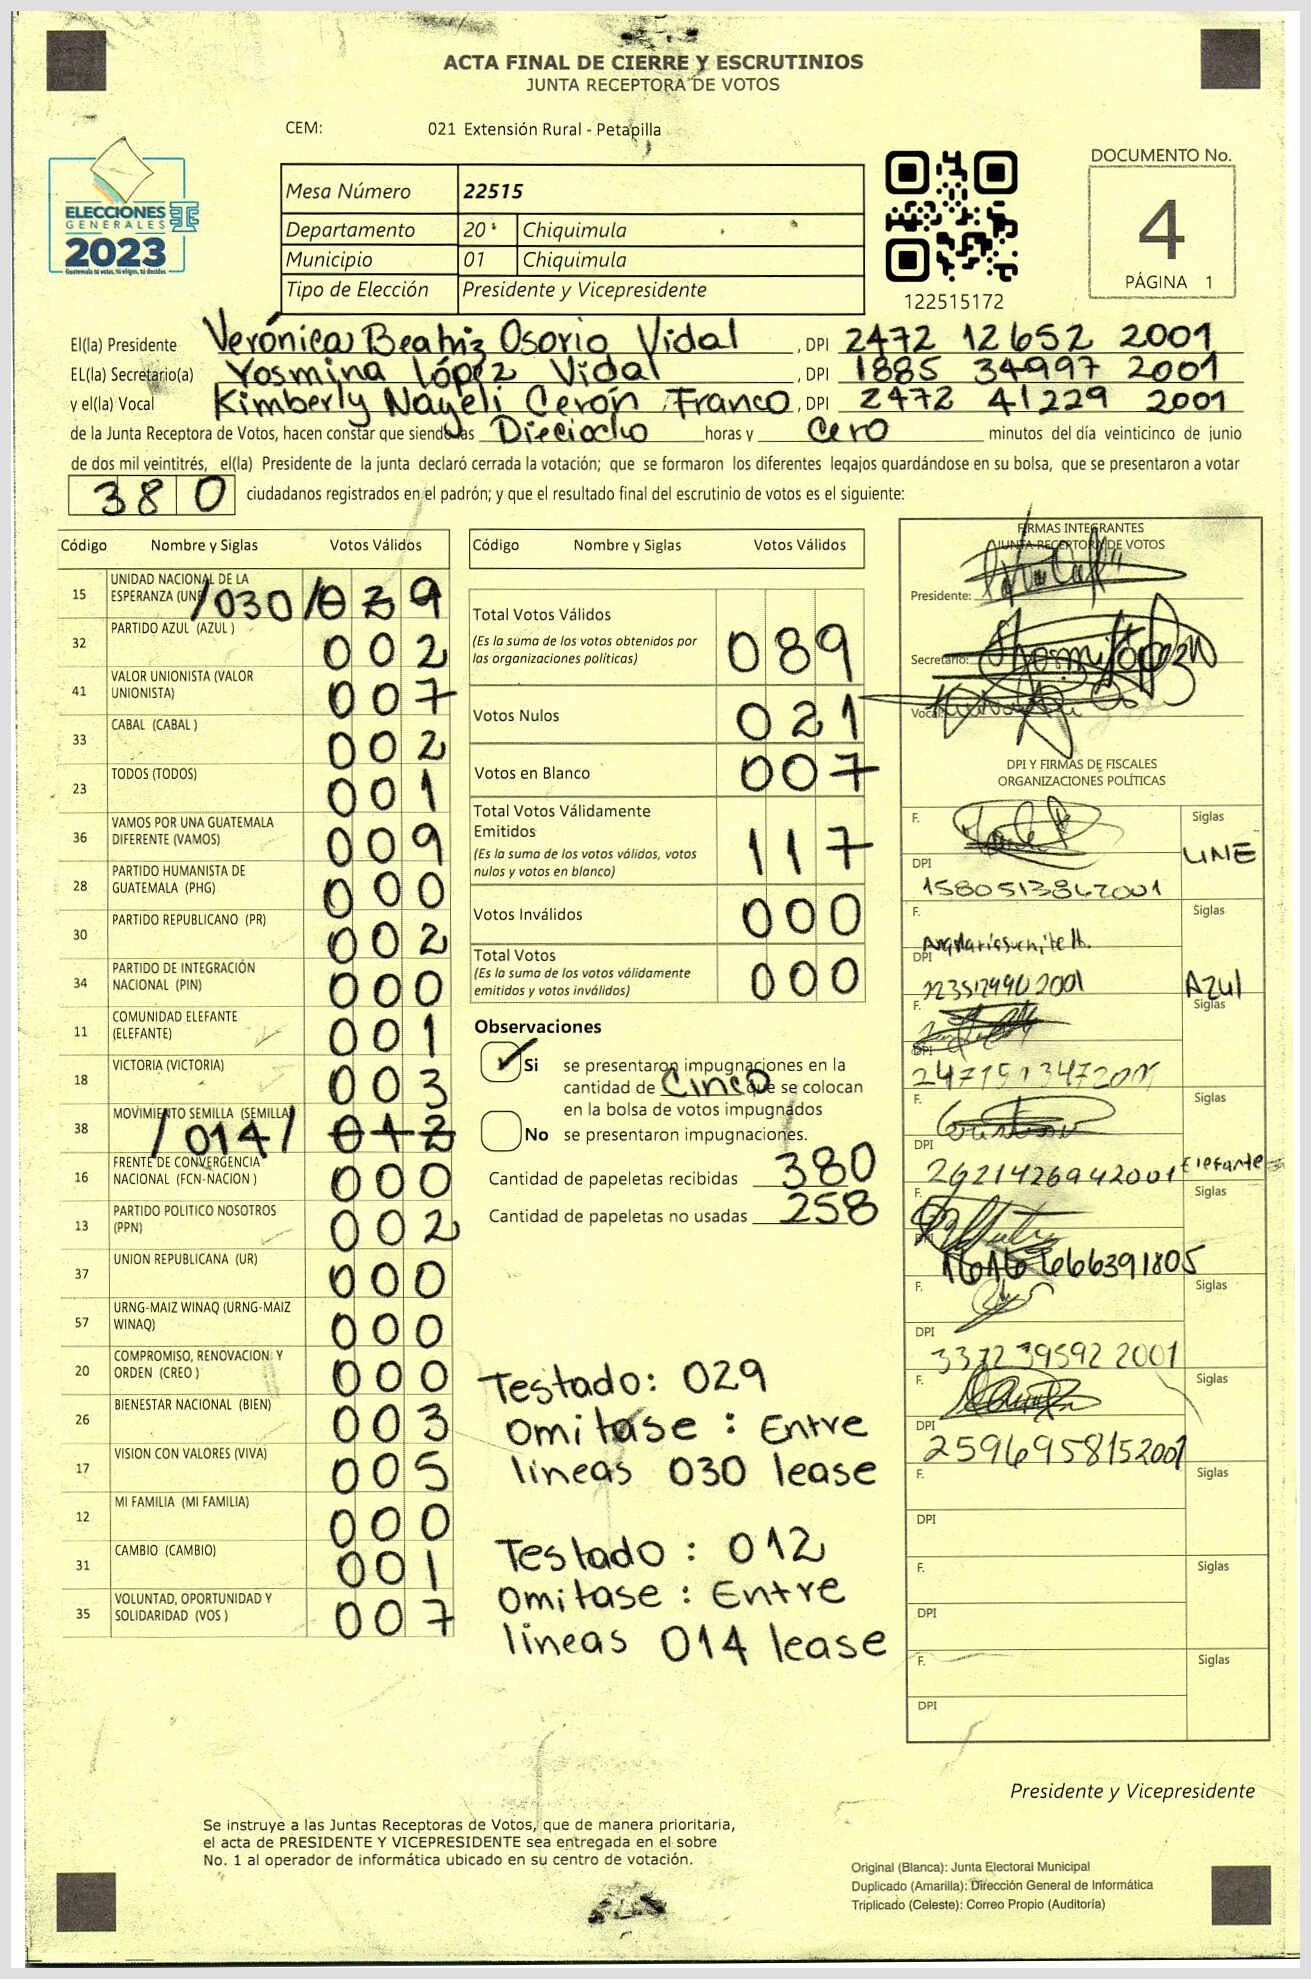 ACTA FINAL DE CIERRE Y ESCRUTINIOS
JUNTA RECEPTORA DE VOTOS
CEM: 021 Extensión Rural - Petapilla
ELECCIONES
GENERALES
2023
Guatemala tú votas, tú eliges, tú decides
Mesa Número 22515
Departamento 20 Chiquimula
Municipio 01 Chiquimula
Tipo de Elección Presidente y Vicepresidente
122515172
DOCUMENTO No.
4
PÁGINA 1
El(la) Presidente Verónica Beatriz Osorio Vidal, DPI 2472 12652 2001
EL(la) Secretario(a) Yosmina López Vidal, DPI 1885 34997 2001
y el(la) Vocal Kimberly Nayeli Cerón Franco, DPI 2472 41229 2001
de la Junta Receptora de Votos, hacen constar que siendo las Dieciocho horas y cero minutos del día veinticinco de junio
de dos mil veintitrés, el(la) Presidente de la junta declaró cerrada la votación; que se formaron los diferentes legajos guardándose en su bolsa, que se presentaron a votar
380 ciudadanos registrados en el padrón; y que el resultado final del escrutinio de votos es el siguiente:
Código Nombre y Siglas Votos Válidos
15 UNIDAD NACIONAL DE LA ESPERANZA (UNE) /030/ 029
32 PARTIDO AZUL (AZUL ) 002
41 VALOR UNIONISTA (VALOR UNIONISTA) 007
33 CABAL (CABAL ) 002
23 TODOS (TODOS) 001
36 VAMOS POR UNA GUATEMALA DIFERENTE (VAMOS) 009
28 PARTIDO HUMANISTA DE GUATEMALA (PHG) 000
30 PARTIDO REPUBLICANO (PR) 002
34 PARTIDO DE INTEGRACIÓN NACIONAL (PIN) 000
11 COMUNIDAD ELEFANTE (ELEFANTE) 001
18 VICTORIA (VICTORIA) 003
38 MOVIMIENTO SEMILLA (SEMILLA) /014/ 012
16 FRENTE DE CONVERGENCIA NACIONAL (FCN-NACION ) 000
13 PARTIDO POLITICO NOSOTROS (PPN) 002
37 UNION REPUBLICANA (UR) 000
57 URNG-MAIZ WINAQ (URNG-MAIZ WINAQ) 000
20 COMPROMISO, RENOVACION Y ORDEN (CREO ) 000
26 BIENESTAR NACIONAL (BIEN) 003
17 VISION CON VALORES (VIVA) 005
12 MI FAMILIA (MI FAMILIA) 000
31 CAMBIO (CAMBIO) 001
35 VOLUNTAD, OPORTUNIDAD Y SOLIDARIDAD (VOS ) 007
Código Nombre y Siglas Votos Válidos
Total Votos Válidos 089
(Es la suma de los votos obtenidos por
las organizaciones políticas)
Votos Nulos 021
Votos en Blanco 007
Total Votos Válidamente
Emitidos 117
(Es la suma de los votos válidos, votos
nulos y votos en blanco)
Votos Inválidos 000
Total Votos 000
(Es la suma de los votos válidamente
emitidos y votos inválidos)
Observaciones
Si se presentaron impugnaciones en la
cantidad de Cinco que se colocan
en la bolsa de votos impugnados
No se presentaron impugnaciones.
Cantidad de papeletas recibidas 380
Cantidad de papeletas no usadas 258
Testado: 029
Omitase : Entre
lineas 030 lease
Testado : 012
Omitase : Entre
lineas 014 lease
FIRMAS INTEGRANTES
JUNTA RECEPTORA DE VOTOS
Presidente:
Secretario:
Vocal
DPI Y FIRMAS DE FISCALES
ORGANIZACIONES POLÍTICAS
F. Siglas
UNE
DPI
F. Siglas
DPI
Azul
F. Siglas
DPI
F. Siglas
DPI
2921426942001 Elefante
F. Siglas
DPI
F. Siglas
DPI
3372 39592 2001
F. Siglas
DPI
2596958152001
F. Siglas
DPI
F. Siglas
DPI
F. Siglas
DPI
Presidente y Vicepresidente
Se instruye a las Juntas Receptoras de Votos, que de manera prioritaria,
el acta de PRESIDENTE Y VICEPRESIDENTE sea entregada en el sobre
No. 1 al operador de informática ubicado en su centro de votación.
Original (Blanca): Junta Electoral Municipal
Duplicado (Amarilla): Dirección General de Informática
Triplicado (Celeste): Correo Propio (Auditoría)